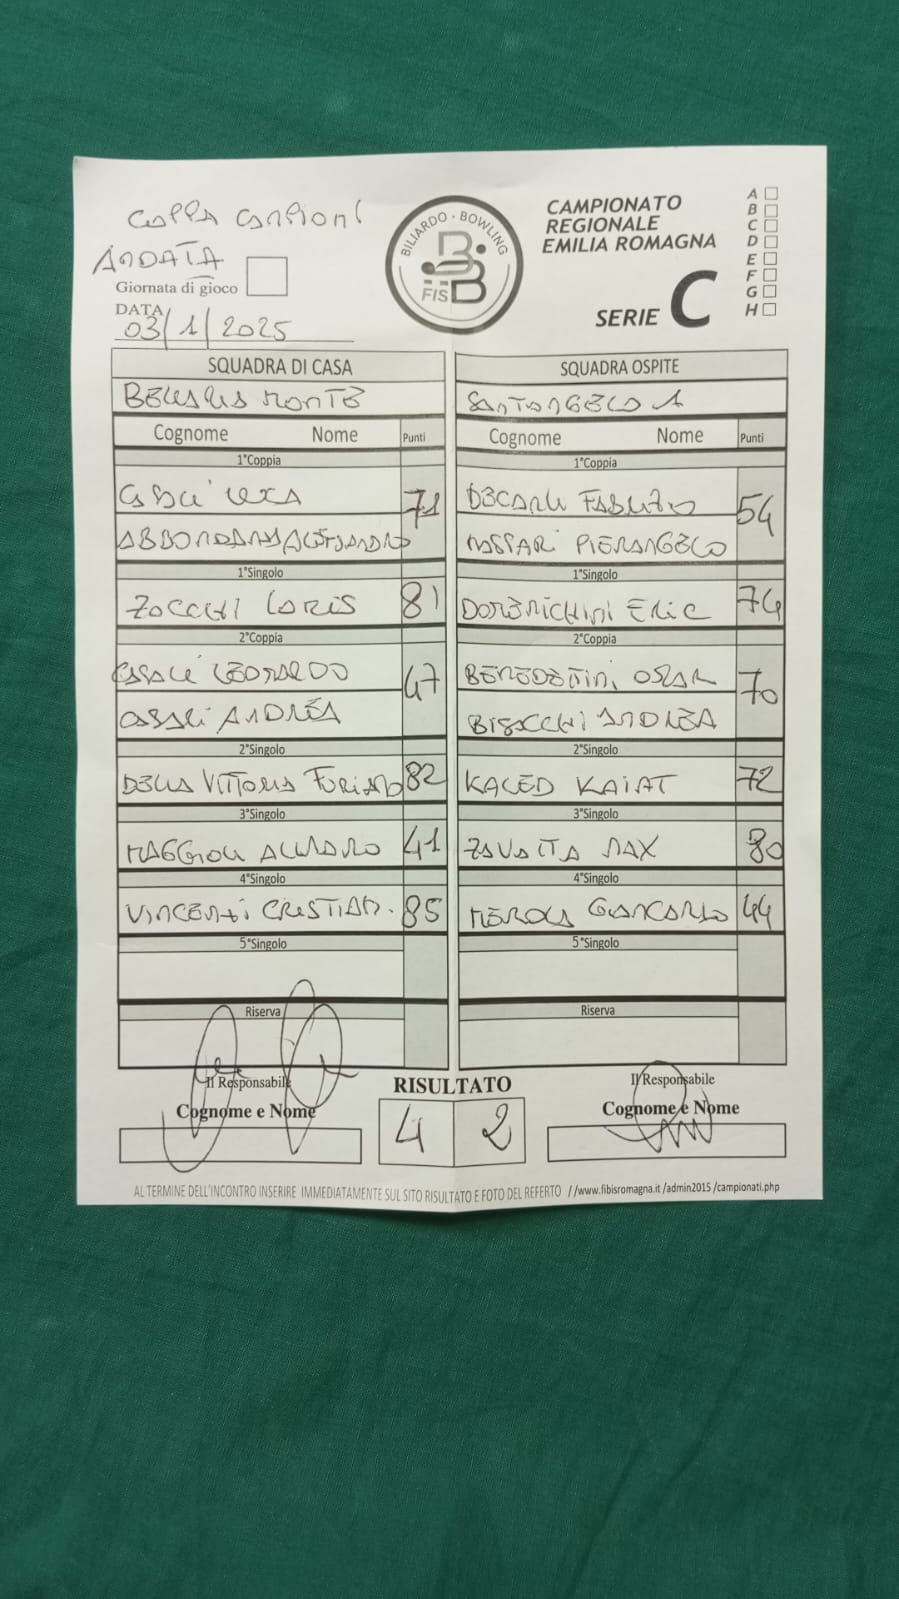 COPPA CAMPIONI
ANDATA
Giornata di gioco
DATA
03/1/2025
BILIARDO · BOWLING
FISBB
CAMPIONATO
REGIONALE
EMILIA ROMAGNA
SERIE C
A
B
C
D
E
F
G
H
SQUADRA DI CASA SQUADRA OSPITE
MONTE SANTANGELO 1
Cognome Nome Punti Cognome Nome Punti
1°Coppia 1°Coppia
CASALI LUCA 71 DECARLI FABRIZIO 54
ABBONDANZA ALESSANDRO GASPARI PIERANGELO
1°Singolo 1°Singolo
ZOCCHI LORIS 81 DOMENICHINI ERIC 74
2°Coppia 2°Coppia
CASALI LEONARDO 47 BENEDETTINI OSCAR 70
CASALI ANDREA BISACCHI ANDREA
2°Singolo 2°Singolo
DELLA VITTORIA FURIANO 82 KACED KAIAT 72
3°Singolo 3°Singolo
MAGGIOLI ALVARO 41 ZAVATTA MAX 80
4°Singolo 4°Singolo
VINCENZI CRISTIAN. 85 MEROLA GIANCARLO 44
5°Singolo 5°Singolo
Riserva Riserva
Il Responsabile RISULTATO Il Responsabile
Cognome e Nome Cognome e Nome
4 2
AL TERMINE DELL'INCONTRO INSERIRE IMMEDIATAMENTE SUL SITO RISULTATO E FOTO DEL REFERTO //www.fibisromagna.it /admin2015 /campionati.php